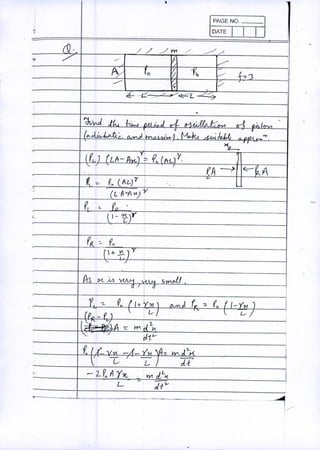 PAGE NO.
DATE
Q.
m
A P₀ P₀ f=3
← L → ← L →
Find the time period of oscillation of piston
(adiabatic and massin). Make suitable approxⁿ
x
(P_L) (LA-Ax)^γ = P₀ (AL)^γ.
P_L A → ← P_R A
P_L = P₀ (AL)^γ
(LA-Ax)^γ
P_L = P₀
(1-x/L)^γ
P_R = P₀
(1+x/L)^γ
As x is very, very small.
P_L = P₀ (1+γx/L) and P_R = P₀ (1-γx/L)
(P_R-P_L)
A = m d²x/dt²
P₀ (1-γx/L -1-γx/L)A = m d²x/dt
-2P₀Aγx/L = m d²x/dt²